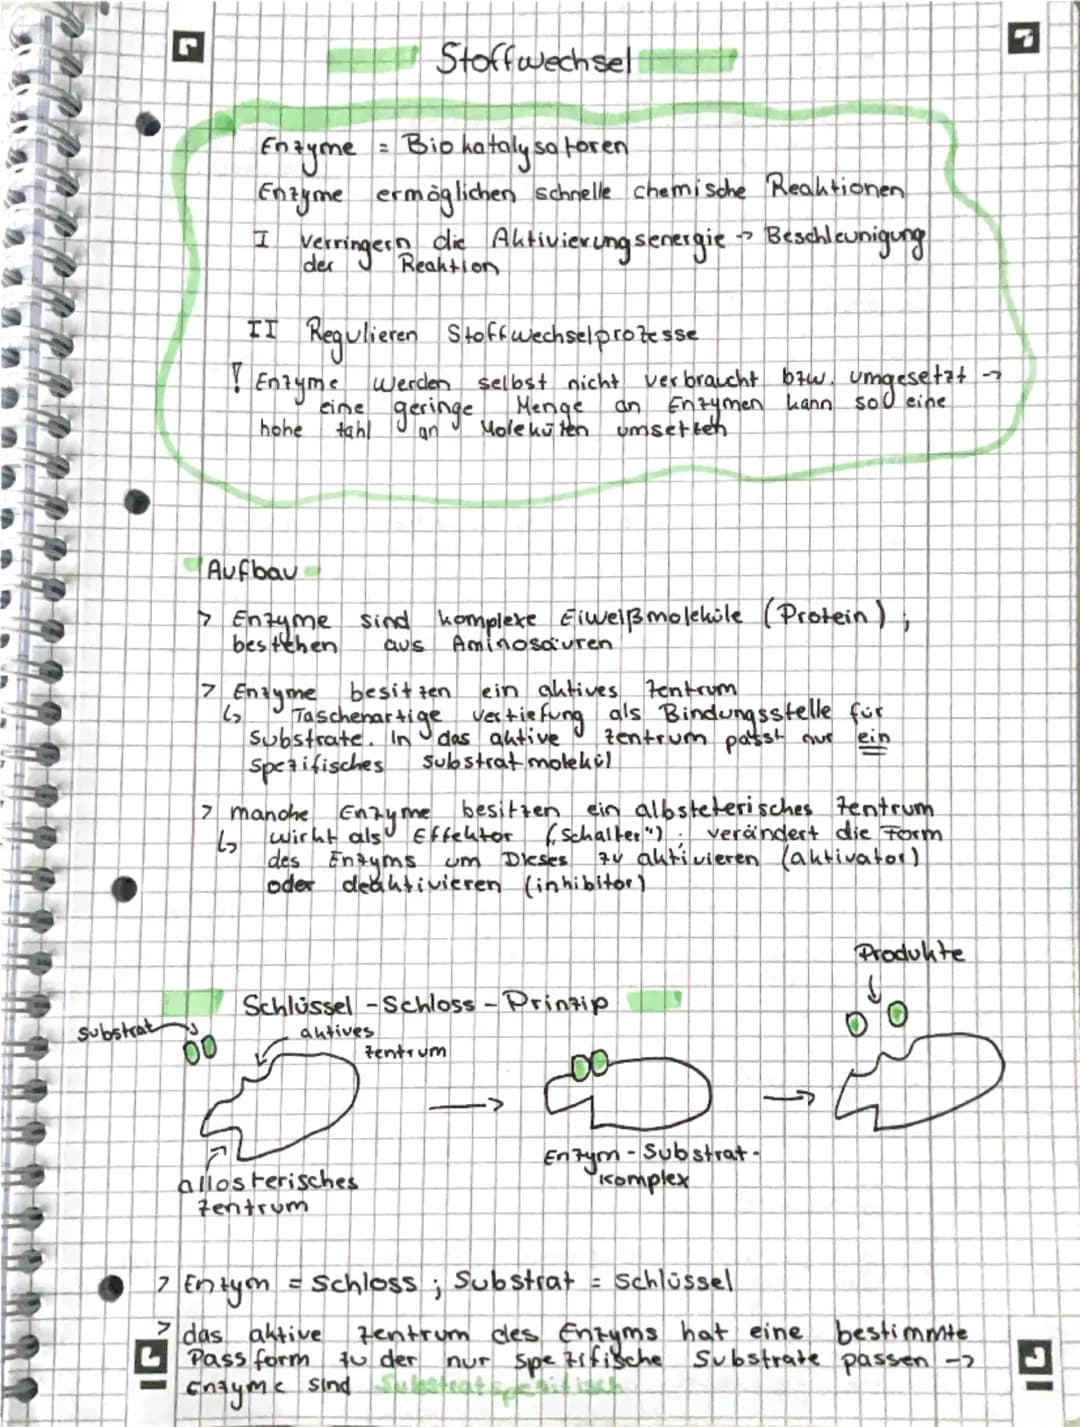 Stoffwechsel
Enzyme = Biokatalysatoren
Enzyme ermöglichen schnelle chemische Reaktionen
I verringern die Aktivierungsenergie → Beschleunigung
der Reaktion
II Regulieren Stoffwechselprozesse
! Enzyme werden selbst nicht verbraucht bzw. umgesetzt →
eine geringe Menge an Enzymen kann so eine
hohe Zahl an Molekülen umsetzen
Aufbau
> Enzyme sind komplexe Eiweißmoleküle (Protein) ;
bestehen aus Aminosäuren
> Enzyme besitzen ein aktives Zentrum
↳ Taschenartige Vertiefung als Bindungsstelle für
Substrate. In das aktive Zentrum passt nur ein
spezifisches Substratmolekül
> manche Enzyme besitzen ein albsteterisches Zentrum
↳ wirkt als Effektor („Schalter") ; verändert die Form
des Enzyms um Dieses zu aktivieren (aktivator)
oder deaktivieren (inhibitor)
Produkte
Schlüssel-Schloss-Prinzip
Substrat
aktives
Zentrum
Enzym-Substrat-
Komplex
allosterisches
Zentrum
> Enzym = Schloss ; Substrat = Schlüssel
> das aktive Zentrum des Enzyms hat eine bestimmte
Passform zu der nur spezifische Substrate passen →
Enzyme sind Substratspezifisch